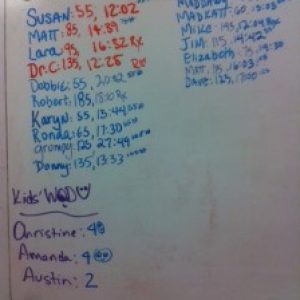 SUSAN: 55, 12:02
MATT: 85, 14:39
Lara: 95, 16:32 Rx
Dr. C: 135, 12:25 Rx
Debbie: 55, 20:42
Robert: 185, 18:10 Rx
Karyn: 55, 13:44
Ronda: 65, 17:30
grumpy: 125 27:49
Danny: 135, 13:33
MADKATT: 60,
Mike:
JIM: 115, 14:42
Elizabeth:
Matt,
Dave: 125, 7:00
Kids' WOD
Christine: 4
Amanda: 4
Austin: 2